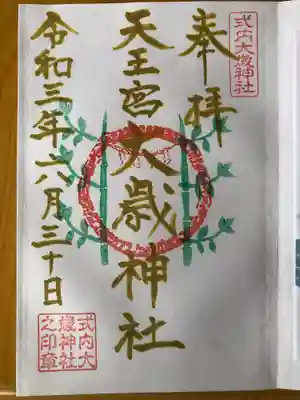 式内大歳神社
奉拝
天王宮大歳神社
令和三年六月三十日
式内大
歳神社
之印章